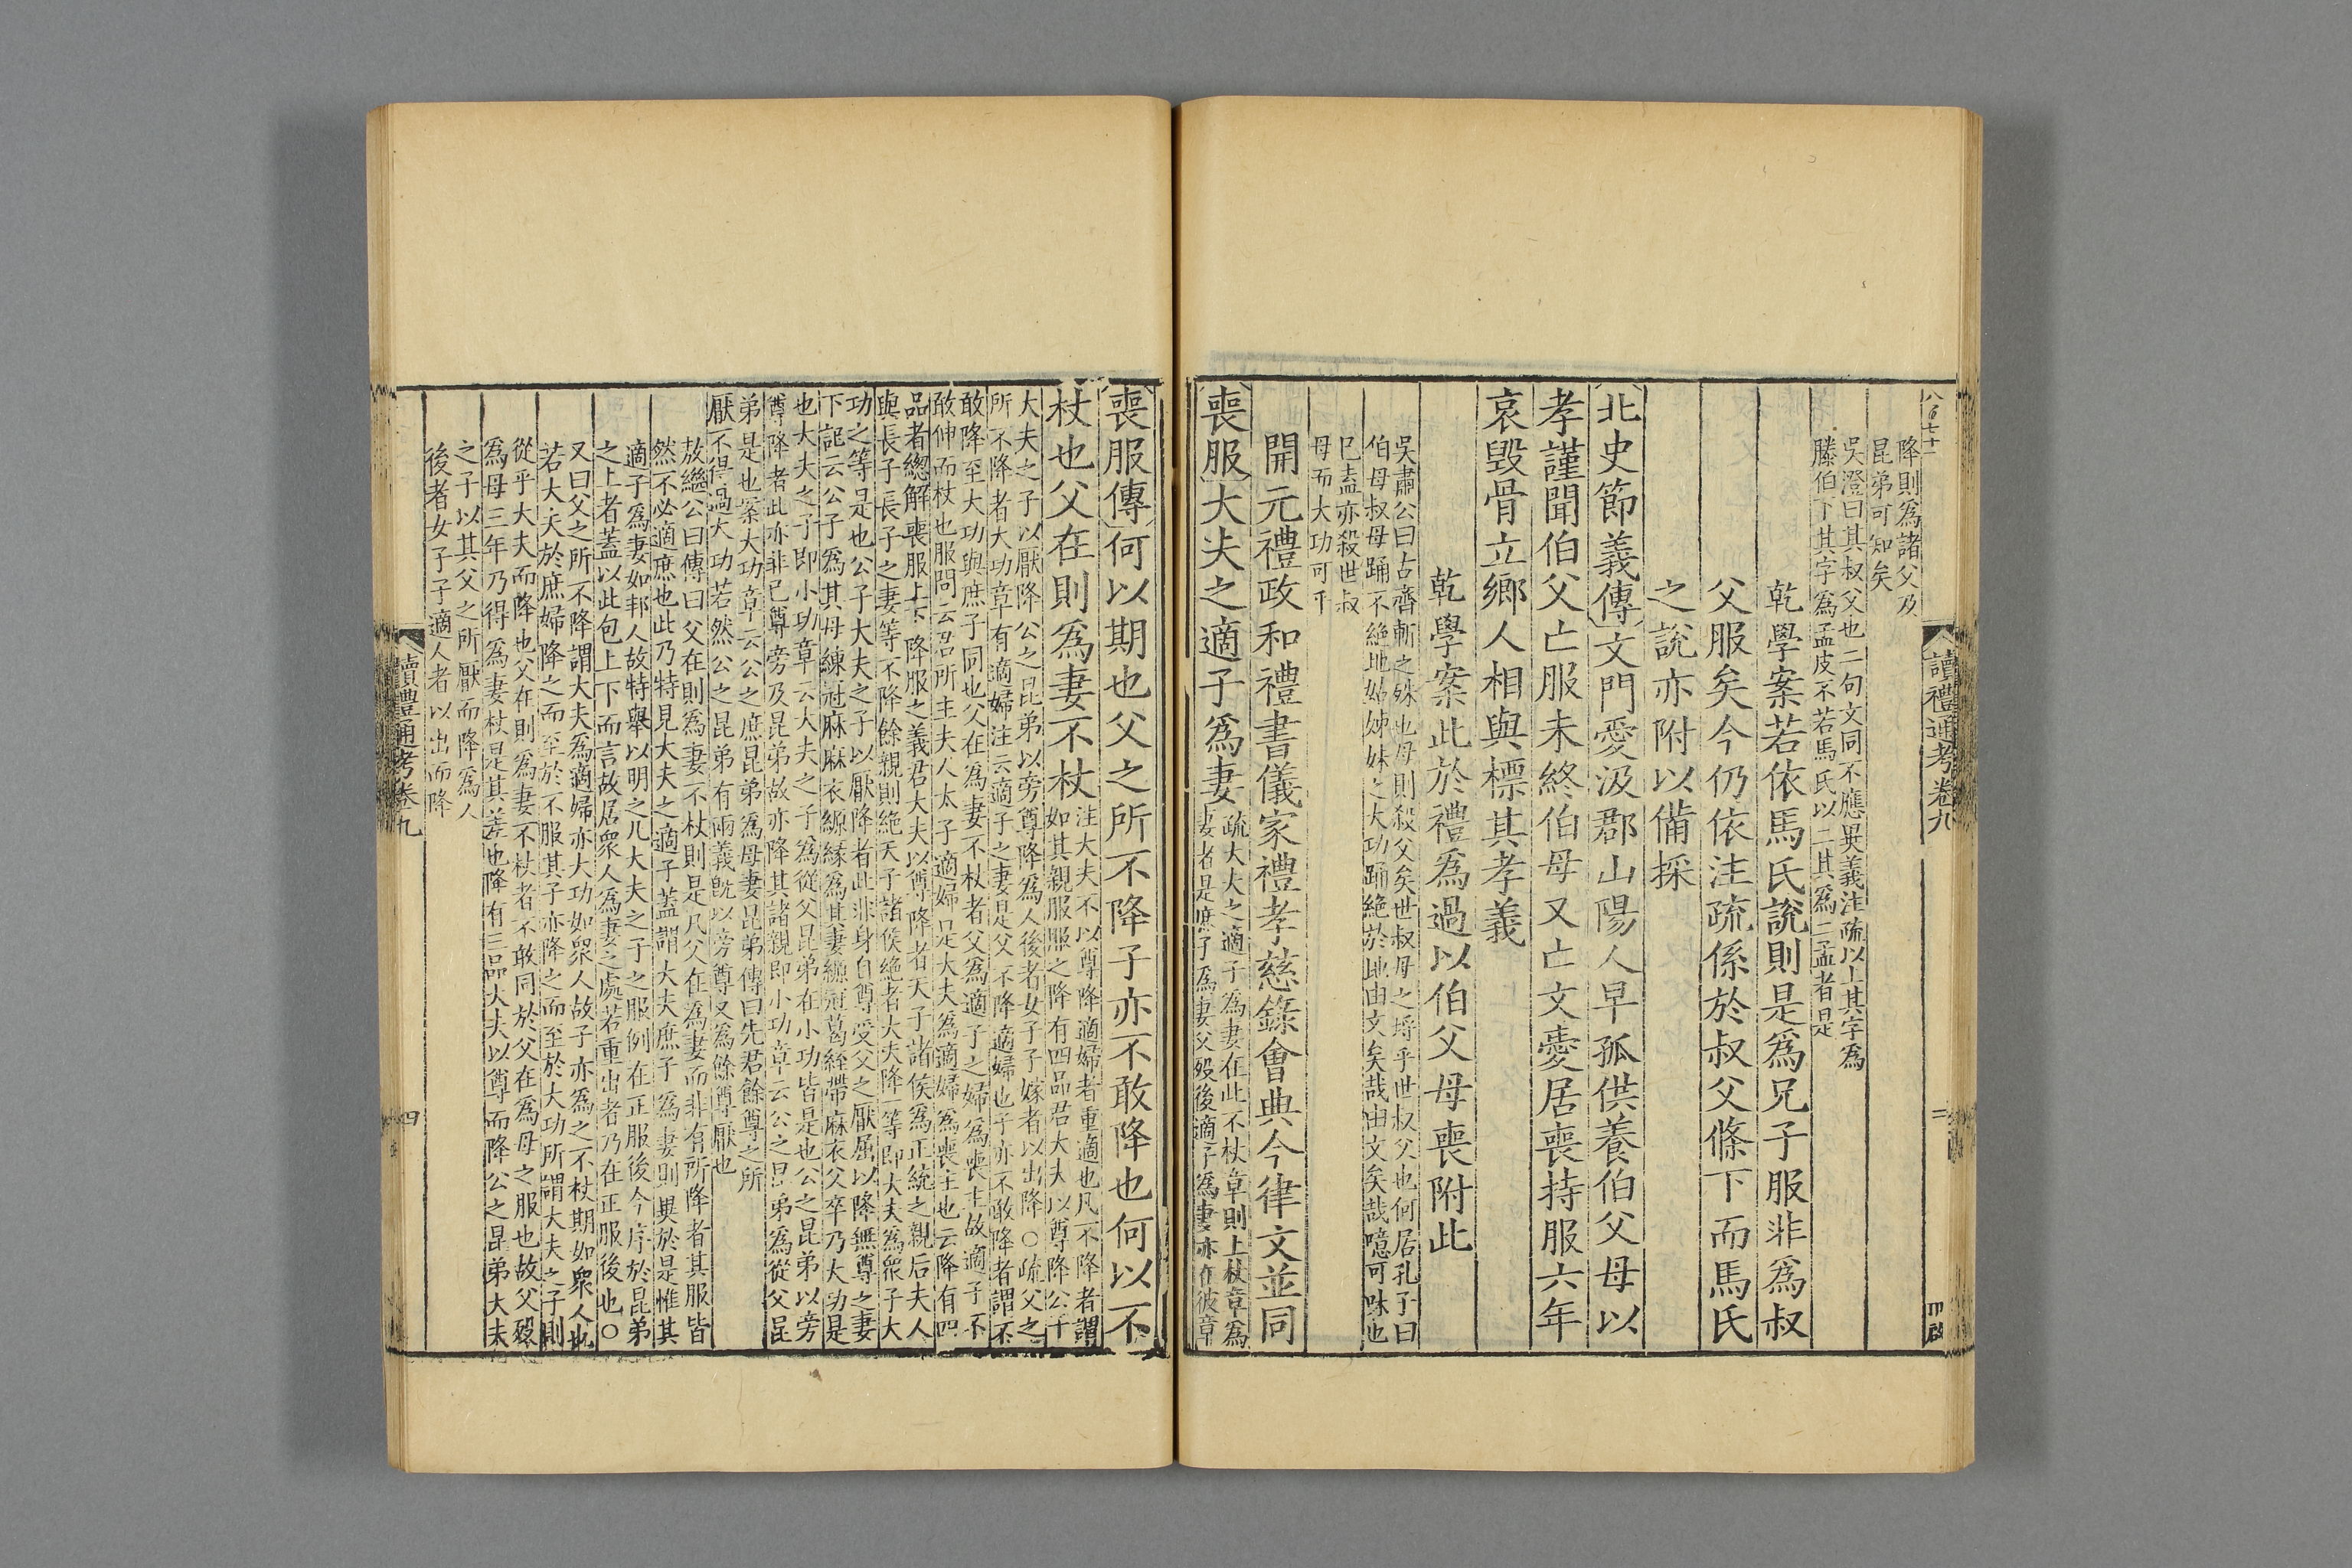 八百七十一
讀禮通考卷九
二
降則為諸父及
昆弟可知矣
吳澄曰其叔父也二句文同不應異義注疏以上其字為
滕伯下其字為孟皮不若馬氏以二其為二孟者是
乾學案若依馬氏說則是為兄子服非為叔
父服矣今仍依注疏係於叔父條下而馬氏
之說亦附以備採
北史節義傳文門愛汲郡山陽人早孤供養伯父母以
孝謹聞伯父亡服未終伯母又亡文愛居喪持服六年
哀毀骨立鄉人相與標其孝義
乾學案此於禮為過以伯父母喪附此
吳肅公曰古齊斬之殊也母則殺父矣世叔母之埒乎世叔父也何居孔子曰
伯母叔母踊不絕地姑姊妹之大功踊絕於地由文矣哉由文矣哉噫可味也
已盍亦殺世叔
母而大功可乎
開元禮政和禮書儀家禮孝慈錄會典今律文並同
喪服大夫之適子為妻
疏大夫之適子為妻在此不杖章則上杖章為
妻者是庶子為妻父歿後適子為妻亦在彼章
喪服傳何以期也父之所不降子亦不敢降也何以不
杖也父在則為妻不杖
注大夫不以尊降適婦者重適也凡不降者謂
如其親服服之降有四品君大夫以尊降公子
大夫之子以厭降公之昆弟以旁尊降為人後者女子子嫁者以出降〇疏父之
所不降者大功章有適婦注云適子之妻是父不降適婦也子亦不敢降者謂不
敢降至大功與庶子同也父在為妻不杖者父為適子之婦為喪主故適子不
敢伸而杖也服問云君所主夫人太子適婦是大夫為適婦為喪主也云降有四
品者總解喪服上下降服之義君大夫以尊降者天子諸侯為正統之親后夫人
與長子長子之妻等不降餘親則絕天子諸侯絕者大夫降一等即大夫為眾子大
功之等是也公子大夫之子以厭降者此非身自尊受父之厭屈以降無尊之妻
下記云公子為其母練冠麻麻衣縓緣為其妻縓冠葛絰帶麻衣父卒乃大功是
也大夫之子即小功章云大夫之子為從父昆弟在小功皆是也公之昆弟以旁
尊降者此亦非已尊旁及昆弟故亦降其諸親即小功章云公之昆弟為從父昆
弟是也案大功章云公之庶昆弟為母妻昆弟傳曰先君餘尊之所
厭不得過大功若然公之昆弟有兩義既以旁尊又為餘尊厭也
敖繼公曰傳曰父在則為妻不杖則是凡父在為妻而非有所降者其服皆
然不必適庶也此乃特見大夫之適子蓋謂大夫庶子為妻則異於是惟其
適子為妻如邦人故特舉以明之凡大夫之子之服例在正服後今序於昆弟
之上者蓋以此包上下而言故居眾人為妻之處若重出者乃在正服後也〇
又曰父之所不降謂大夫為適婦亦大功如眾人故子亦為之不杖期如眾人也
若大夫於庶婦降之而至於不服其子亦降之而至於大功所謂大夫之子則
從乎大夫而降也父在則為妻不杖者不敢同於父在為母之服也故父歿
為母三年乃得為妻杖是其差也降有三品大夫以尊而降公之昆弟大夫
之子以其父之所厭而降為人
後者女子子適人者以出而降
讀禮通考卷九
四